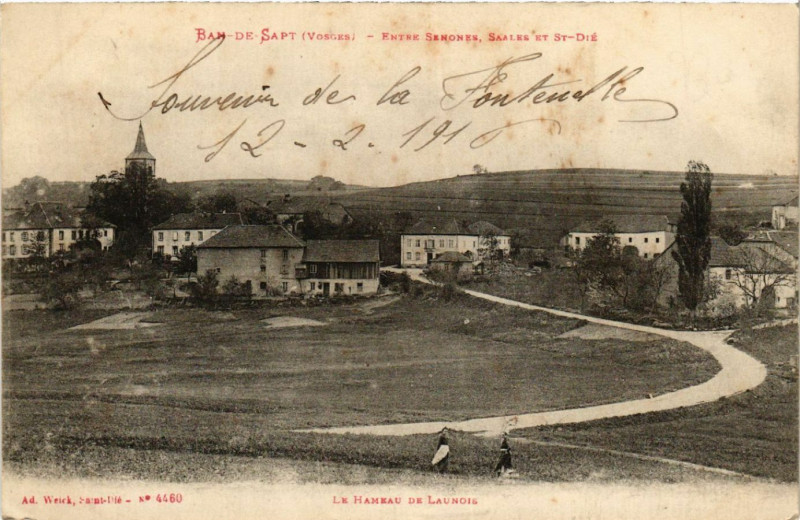 BAN-DE-SAPT (VOSGES) - ENTRE SENONES, SAALES ET ST-DIÉ
Souvenir de la Fontenelle
12-2-191
Ad. Weick, Saint-Dié - N° 4460
LE HAMEAU DE LAUNOIS